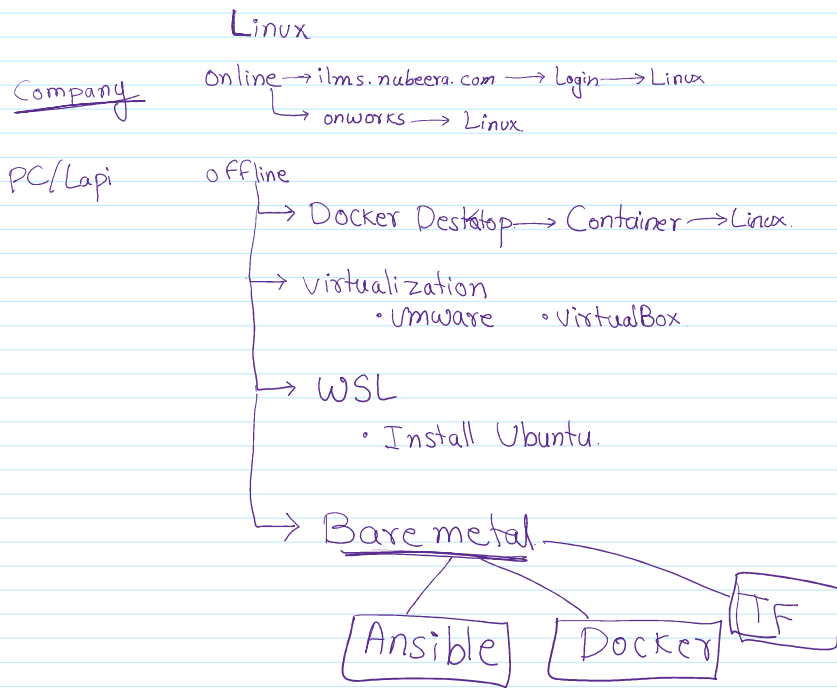 Linux
Company
Online → ilms.nubeera.com → Login → Linux
→ onworks → Linux.
PC/Lapi
offline
→ Docker Desktop → Container → Linux.
→ Virtualization
• Vmware • VirtualBox
→ WSL
• Install Ubuntu.
→ Bare metal
Ansible Docker TF